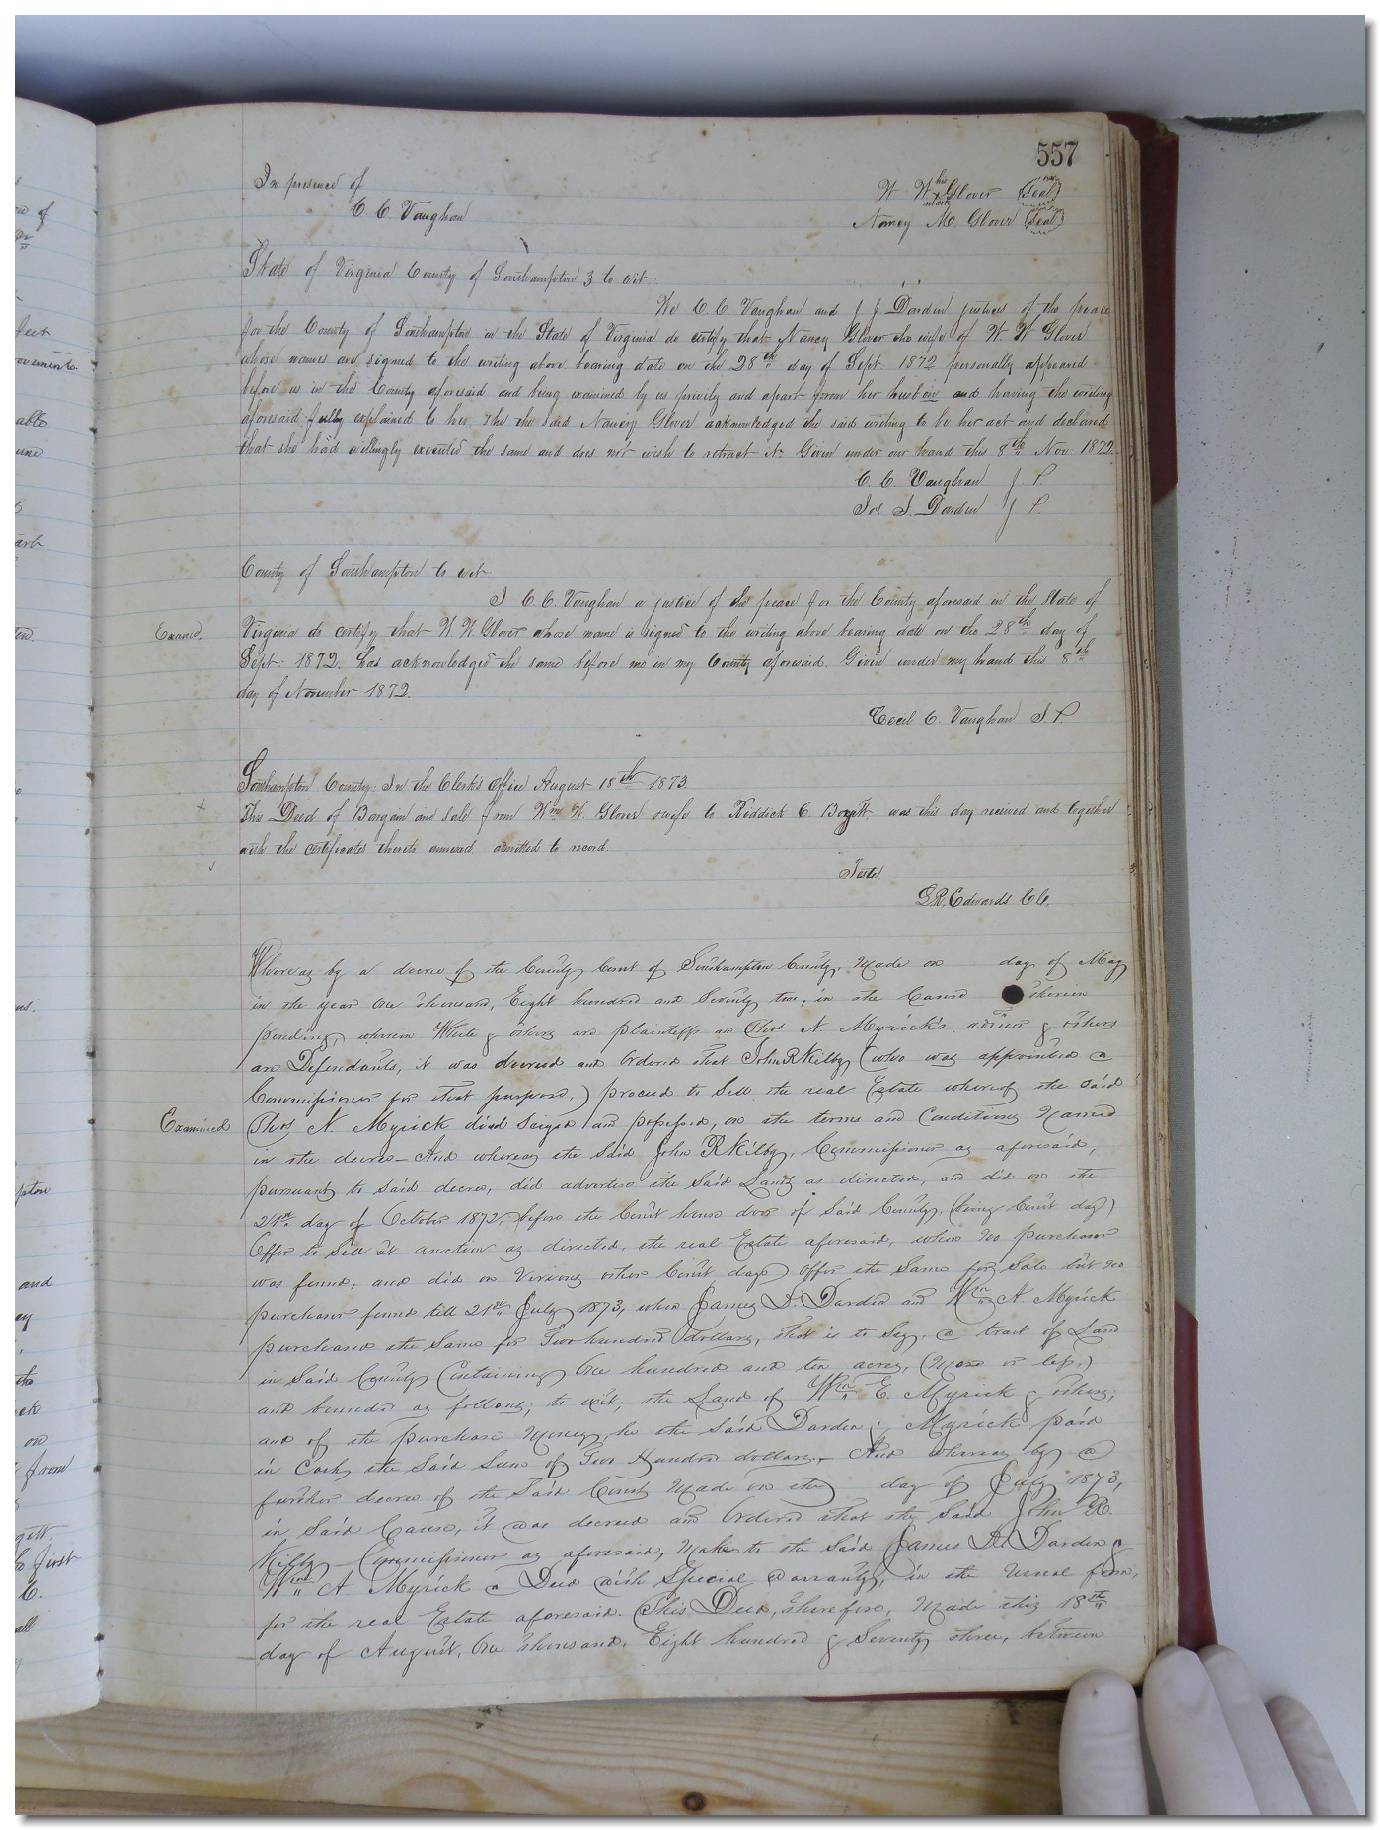 557
In presence of W. W. his x mark Glover (Seal)
C. C. Vaughan Nancy M. Glover (Seal)
State of Virginia County of Southampton 3 to wit
We C. C. Vaughan and J. J. Darden justices of the peace
for the County of Southampton in the State of Virginia do certify that Nancy Glover the wife of W. W. Glover
whose names are signed to the writing above bearing date on the 28th day of Sept. 1872 personally appeared
before us in the County aforesaid and being examined by us privily and apart from her husban and having the writing
aforesaid fully explained to her, the the said Nancy Glover acknowledged the said writing to be her act and declared
that she had willingly executed the same and does not wish to retract it. Given under our hand this 8th Nov. 1872.
C. C. Vaughan J. P.
Jos. J. Darden J P.
County of Southampton to wit
I C. C. Vaughan a justice of the peace for the County aforesaid in the State of
Examd. Virginia do certify that W. W. Glover whose name is signed to the writing above bearing date on the 28th day of
Sept. 1872. has acknowledged the same before me in my County aforesaid. Given under my hand this 8th
day of November 1872.
Cecil C. Vaughan J. P.
Southampton County: In the Clerks Office August 18th 1873.
This Deed of Bargain and Sale from Wm W. Glover & wife to Riddick C. was this day received and together
with the certificates thereto annexed, admitted to record.
Teste
L. R. Edwards C.C.
Whereas by a decree of the County Court of Southampton County, Made on day of May
in the year One thousand, Eight hundred and Seventy two, in the Cause therein
pending, wherein White & others are plaintiffs and Thos N. Myrick's & others
are Defendants, it was decreed and Ordered that John R Kilby (who was appointed a
Commissioner for that purpose,) proceed to Sell the real Estate whereof the said
Examined Thos N. Myrick died Seized and possessed, on the terms and Conditions Named
in the decree— And whereas the Said John R Kilby, Commissioner as aforesaid,
pursuant to said decree, did advertise the Said Lands as directed, and did on the
21st day of October 1872, before the Court house door of Said County, (being Court day)
Offer to Sell at auction as directed, the real Estate aforesaid, when no purchaser
was found, and did on Various other Court days offer the Same for Sale but no
purchaser found till 21st July 1873, when James D. Darden and Wm A. Myrick
purchased the Same for Two hundred dollars, that is to Say, a tract of Land
in Said County Containing One hundred and ten acres, (More or less,)
and bounded as follows; to wit, the Land of Wm E. Myrick & others;
and of the purchase Money, he the Said Darden & Myrick paid
in Cash the Said Sum of Two Hundred dollars,— And whereas by a
further decree of the Said Court Made on the day of July 1873,
in Said Cause, it was decreed and Ordered that the Said John R.
Kilby— Commissioner as aforesaid, Make to the Said James D. Darden &
Wm A Myrick a Deed with Special Warranty, in the Usual form,
for the real Estate aforesaid. This Deed, therefore, Made this 18th
day of August, One thousand, Eight hundred & Seventy three, between